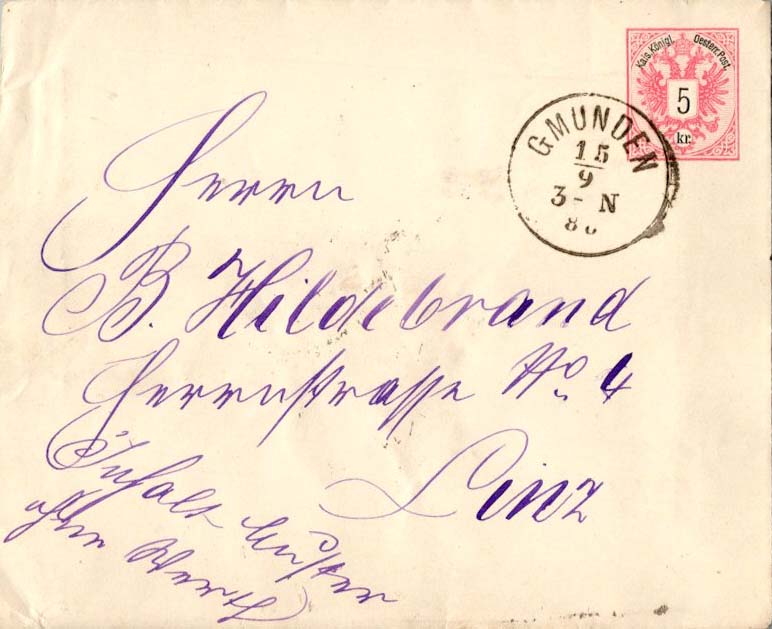 Kais. Königl. Oesterr. Post.
5
kr.
GMUNDEN
15
9
3- N
8
Herrn
B. Hildebrand
Herrnstrasse No. 4
Linz
Inhalt Muster
ohne Werth